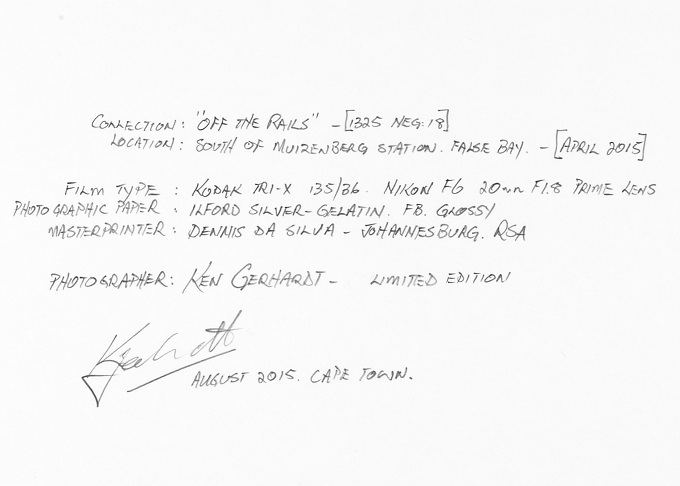 COLLECTION: "OFF THE RAILS" - [1325 NEG: 18]
LOCATION: SOUTH OF MUIZENBERG STATION. FALSE BAY. - [APRIL 2015]
FILM TYPE : KODAK TRI-X 135/36. NIKON F6 20mm F1.8 PRIME LENS
PHOTOGRAPHIC PAPER : ILFORD SILVER-GELATIN. FB. GLOSSY
MASTERPRINTER: DENNIS DA SILVA - JOHANNESBURG. RSA
PHOTOGRAPHER: KEN GERHARDT - LIMITED EDITION
AUGUST 2015. CAPE TOWN.